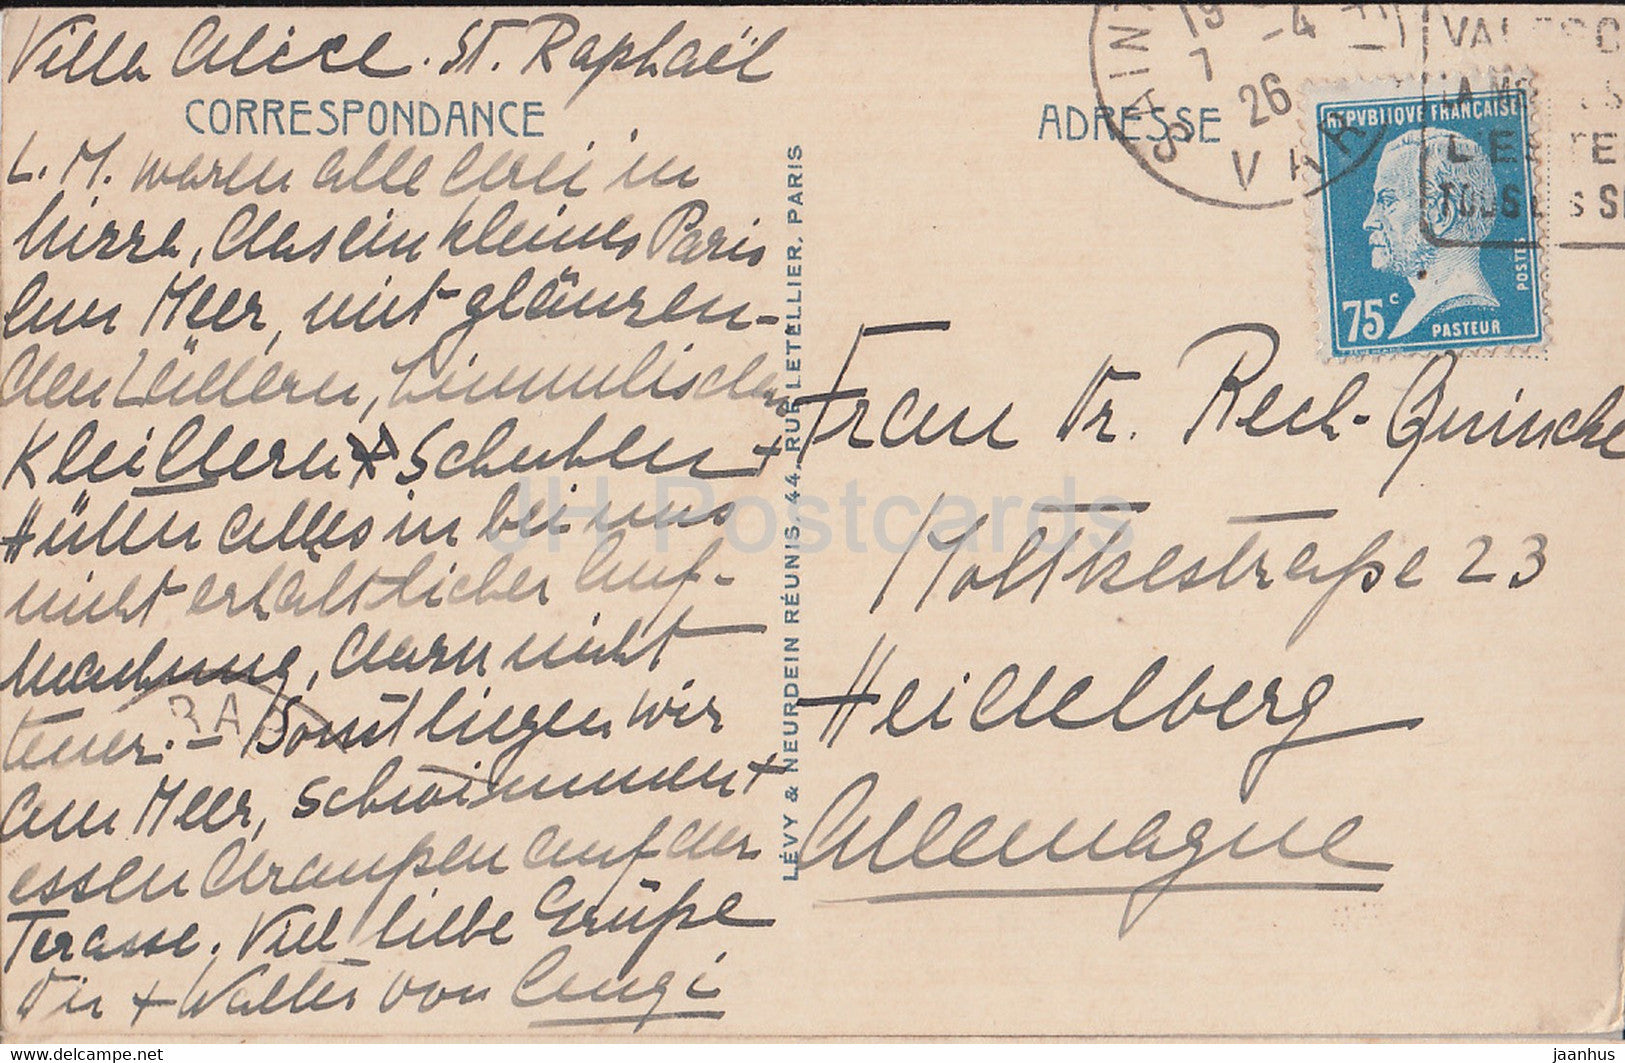 Villa Alice. St. Raphaël
CORRESPONDANCE
L. M. waren alle drei in
Nizza, das ein kleines Paris
am Meer, mit glänzen-
den Läden, himmlischen
Kleidern + Schuhen +
Hüten alles in bei uns
nicht erhältlicher Auf-
machung, darum nicht
teuer. – Sonst liegen wir
am Meer, schwimmen +
essen draußen auf der
Terasse. Viel liebe Grüße
Dir + Walter von
LÉVY & NEURDEIN RÉUNIS, 44, RUE LETELLIER, PARIS
ADRESSE
SAINT
19
7 -4
26
VAR
VALESC
LA
L'E TE
TOUS
REPVBLIQVE FRANÇAISE
POSTES
75 c
PASTEUR
Frau Dr. Rech-Quincke
Moltkestraße 23
Heidelberg
Allemagne
JH Postcards
www.delcampe.net
jaanhus